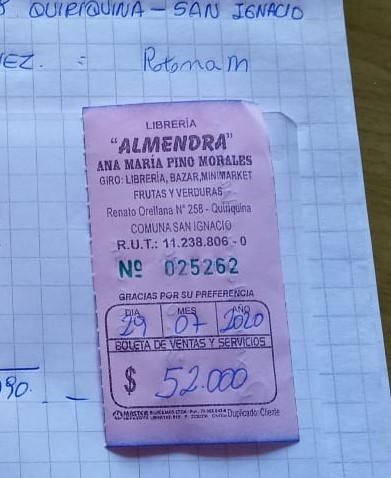 QUIRIQUINA - SAN IGNACIO
EZ. :
LIBRERÍA
"ALMENDRA"
ANA MARÍA PINO MORALES
GIRO: LIBRERÍA, BAZAR, MINIMARKET
FRUTAS Y VERDURAS
Renato Orellana N° 258 - Quiriquina
COMUNA SAN IGNACIO
R.U.T.: 11.238.806 - 0
Nº 025262
GRACIAS POR SU PREFERENCIA
DIA MES AÑO
29 07 2020
BOLETA DE VENTAS Y SERVICIOS
$ 52.000
90. -
Duplicado: Cliente